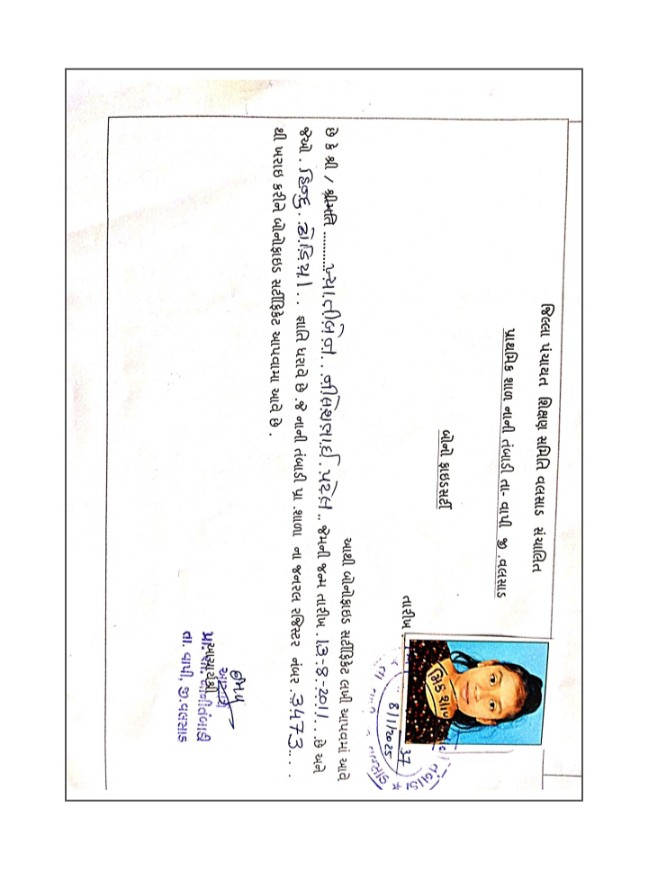 જિલ્લા પંચાયત શિક્ષણ સમિતિ વલસાડ સંચાલિત
પ્રાથમિક શાળા નાની તંબાડી તા- વાપી જી .વલસાડ
બોનો ફાઇડસર્ટી
તારીખ
8/1/2025
આથી બોનોફાઇડ સર્ટીફિકેટ લખી આપવામાં આવે
છે કે શ્રી / શ્રીમતિ ......... ખ્યાતીબેન .. નીલેશભાઈ . પટેલ .. જેમની જન્મ તારીખ . 13-8-2011 ... છે અને
જેઓ . હિન્દુ . ધોડિયા . . જ્ઞાતિ ધરાવે છે .જે નાની તંબાડી પ્રા .શાળા ના જનરલ રજિસ્ટર નંબર . 3473 .. . .
થી ખરાઇ કરીને બોનોફાઇડ સર્ટીફિકેટ આપવામા આવે છે .
તા. વાપી, જી.વલસાડ